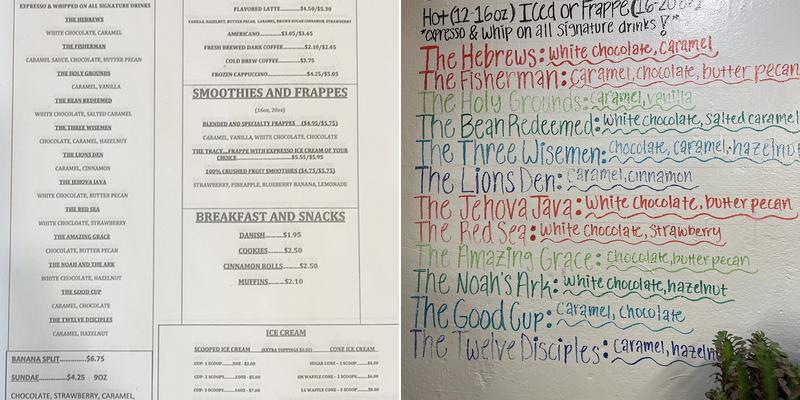 ESPRESSO & WHIPPED ON ALL SIGNATURE DRINKS
THE HEBREWS
WHITE CHOCOLATE, CARAMEL
THE FISHERMAN
CARAMEL SAUCE, CHOCOLATE, BUTTER PECAN
THE HOLY GROUNDS
CARAMEL, VANILLA
THE BEAN REDEEMED
WHITE CHOCOLATE, SALTED CARAMEL
THE THREE WISEMEN
CHOCOLATE, CARAMEL, HAZELNUT
THE LIONS DEN
CARAMEL, CINNAMON
THE JEHOVA JAVA
WHITE CHOCOLATE, BUTTER PECAN
THE RED SEA
WHITE CHOCLOATE, STRAWBERRY
THE AMAZING GRACE
CHOCOLATE, BUTTER PECAN
THE NOAH AND THE ARK
WHITE CHOCOLATE, HAZELNUT
THE GOOD CUP
CARAMEL, CHOCOLATE
THE TWELVE DISCIPLES
CARAMEL, HAZELNUT
BANANA SPLIT..............$6.75
SUNDAE.............$4.25 9OZ
CHOCOLATE, STRAWBERRY, CARAMEL,
FLAVORED LATTE..............$4.50/$5.30
VANILLA, HAZELNUT, BUTTER PECAN, CARAMEL, BROWN SUGAR CINNAMON, STRAWBERRY
AMERICANO...........$3.05/$3.45
FRESH BREWED DARK COFFEE..........$2.10/$2.45
COLD BREW COFFEE..........$3.75
FROZEN CAPPUCCINO..............$4.25/$5.05
SMOOTHIES AND FRAPPES
(16oz, 20oz)
BLENDED AND SPECIALTY FRAPPES ($4.95/$5.75)
CARAMEL, VANILLA, WHITE CHOCOLATE, CHOCOLATE
THE TRACY...FRAPPE WITH EXPRESSO ICE CREAM OF YOUR
CHOICE..............................$5.55/$5.95
100% CRUSHED FRUIT SMOOTHIES ($4.75/$5.75)
STRAWBERRY, PINEAPPLE, BLUEBERRY BANANA, LEMONADE
BREAKFAST AND SNACKS
DANISH.......$1.95
COOKIES......$2.50
CINNAMON ROLLS......$2.50
MUFFINS......$2.10
ICE CREAM
SCOOPED ICE CREAM (EXTRA TOPPINGS $0.50) CONE ICE CREAM
Hot (12-16oz) Iced or Frappe (16-20oz)
*espresso & whip on all signature drinks!*
The Hebrews: white chocolate, caramel
The Fisherman: caramel, chocolate, butter pecan
The Holy Grounds: caramel, vanilla
The Bean Redeemed: white chocolate, salted caramel
The Three Wisemen: chocolate, caramel, hazelnut
The Lions Den: caramel, cinnamon
The Jehova Java: white chocolate, butter pecan
The Red Sea: white chocolate, strawberry
The Amazing Grace: chocolate, butter pecan
The Noah's Ark: white chocolate, hazelnut
The Good Cup: caramel, chocolate
The Twelve Disciples: caramel, hazeln